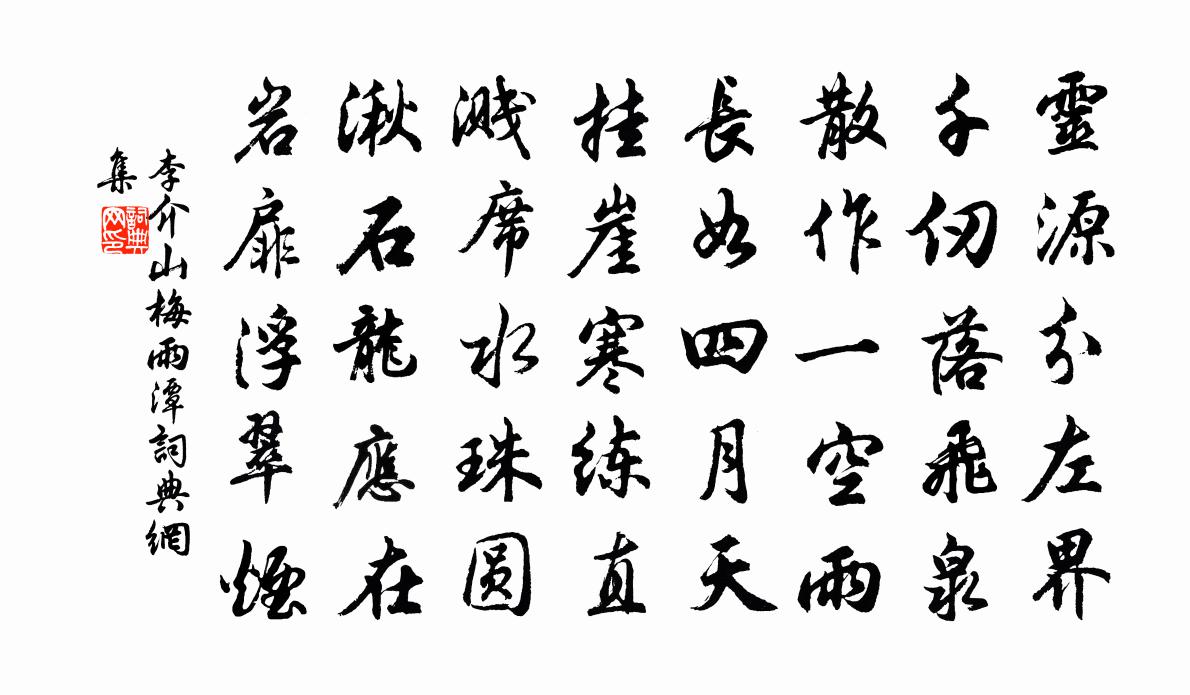 靈源分左界
千仞落飛泉
散作一空雨
長如四月天
挂崖寒练直
溅席水珠圆
湫石龍應在
岩扉浮翠煙
李介山梅雨潭詞典網
集
詞典
网印